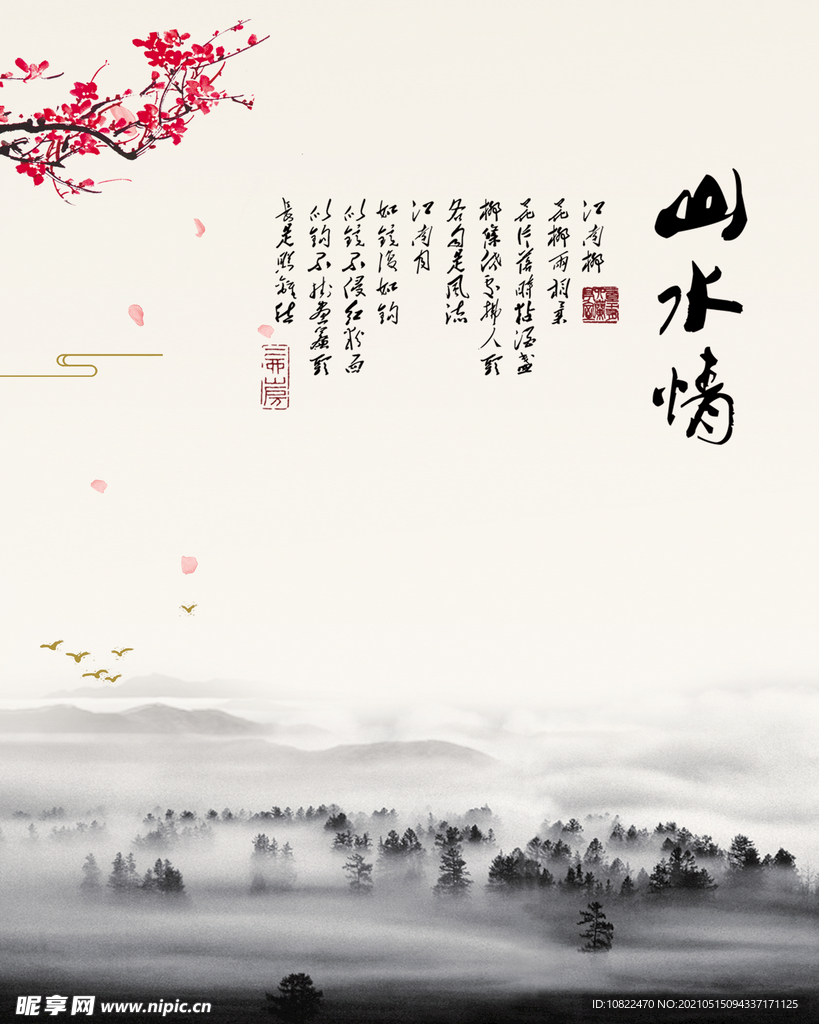 山水情
江南柳
花柳兩相柔
花片落時粘酒盞
柳條低處拂人頭
各自是風流
江南月
如鏡復如鈎
似鏡不侵紅粉面
似鈎不挂畫簾頭
長是照離愁
昵享网 www.nipic.cn
ID:10822470 NO:20210515094337171125